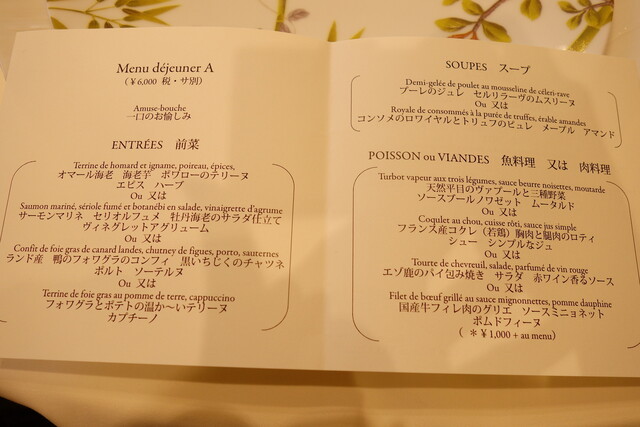 Menu déjeuner A
(￥6,000 税・サ別)
Amuse-bouche
一口のお愉しみ
ENTRÉES 前菜
Terrine de homard et igname, poireau, épices,
オマール海老 海老芋 ポワローのテリーヌ
エピス ハーブ
Ou 又は
Saumon mariné, sériole fumé et botanébi en salade, vinaigrette d'agrume
サーモンマリネ セリオルフュメ 牡丹海老のサラダ仕立て
ヴィネグレットアグリューム
Ou 又は
Confit de foie gras de canard landes, chutney de figues, porto, sauternes
ランド産 鴨のフォワグラのコンフィ 黒いちじくのチャツネ
ポルト ソーテルヌ
Ou 又は
Terrine de foie gras au pomme de terre, cappuccino
フォワグラとポテトの温か〜いテリーヌ
カプチーノ
SOUPES スープ
Demi-gelée de poulet au mousseline de céleri-rave
プーレのジュレ セルリラーヴのムスリーヌ
Ou 又は
Royale de consommés à la purée de truffes, érable amandes
コンソメのロワイヤルとトリュフのピュレ メープル アマンド
POISSON ou VIANDES 魚料理 又は 肉料理
Turbot vapeur aux trois légumes, sauce beurre noisettes, moutarde
天然平目のヴァプールと三種野菜
ソースブールノワゼット ムータルド
Ou 又は
Coquelet au chou, cuisse rôti, sauce jus simple
フランス産コクレ（若鶏）胸肉と腿肉のロティ
シュー シンプルなジュ
Ou 又は
Tourte de chevreuil, salade, parfumé de vin rouge
エゾ鹿のパイ包み焼き サラダ 赤ワイン香るソース
Ou 又は
Filet de bœuf grillé au sauce mignonnettes, pomme dauphine
国産牛フィレ肉のグリエ ソースミニョネット
ポムドフィーヌ
( ＊￥1,000 + au menu)